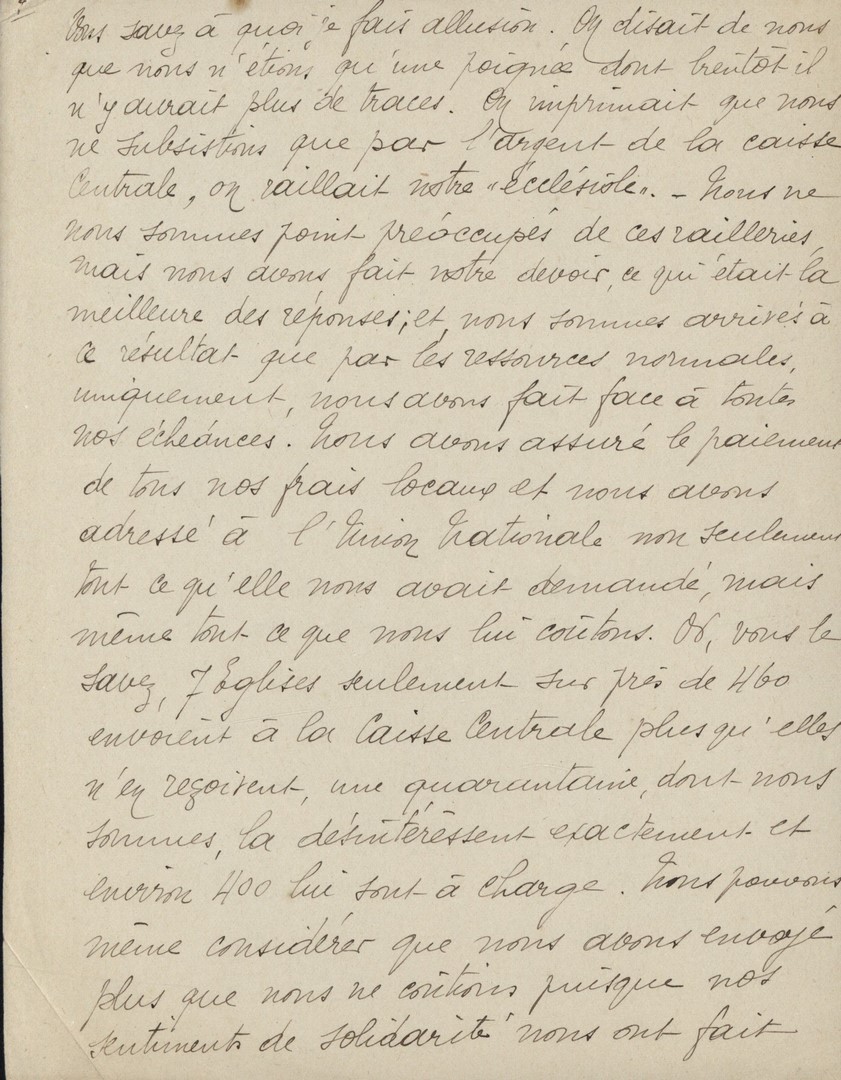 Vous savez à quoi je fais allusion. On disait de nous
que nous n'étions qu'une poignée dont bientôt il
n'y aurait plus de traces. On imprimait que nous
ne subsistions que par l'argent de la caisse
Centrale, on raillait notre "écclésiole". - Nous ne
nous sommes point préoccupés de ces railleries,
mais nous avons fait notre devoir, ce qui était la
meilleure des réponses; et nous sommes arrivés à
ce résultat que par les ressources normales,
uniquement, nous avons fait face à toutes
nos échéances. Nous avons assuré le paiement
de tous nos frais locaux et nous avons
adressé à l'Union Nationale non seulement
tout ce qu'elle nous avait demandé, mais
même tout ce que nous lui coûtons. Or, vous le
savez, 7 Eglises seulement sur près de 460
envoient à la Caisse Centrale plus qu'elles
n'en reçoivent, une quarantaine, dont nous
sommes, la désintéressent exactement et
environ 400 lui sont à charge. Nous pouvons
même considérer que nous avons envoyé
plus que nous ne coûtions puisque nos
sentiments de solidarité nous ont fait